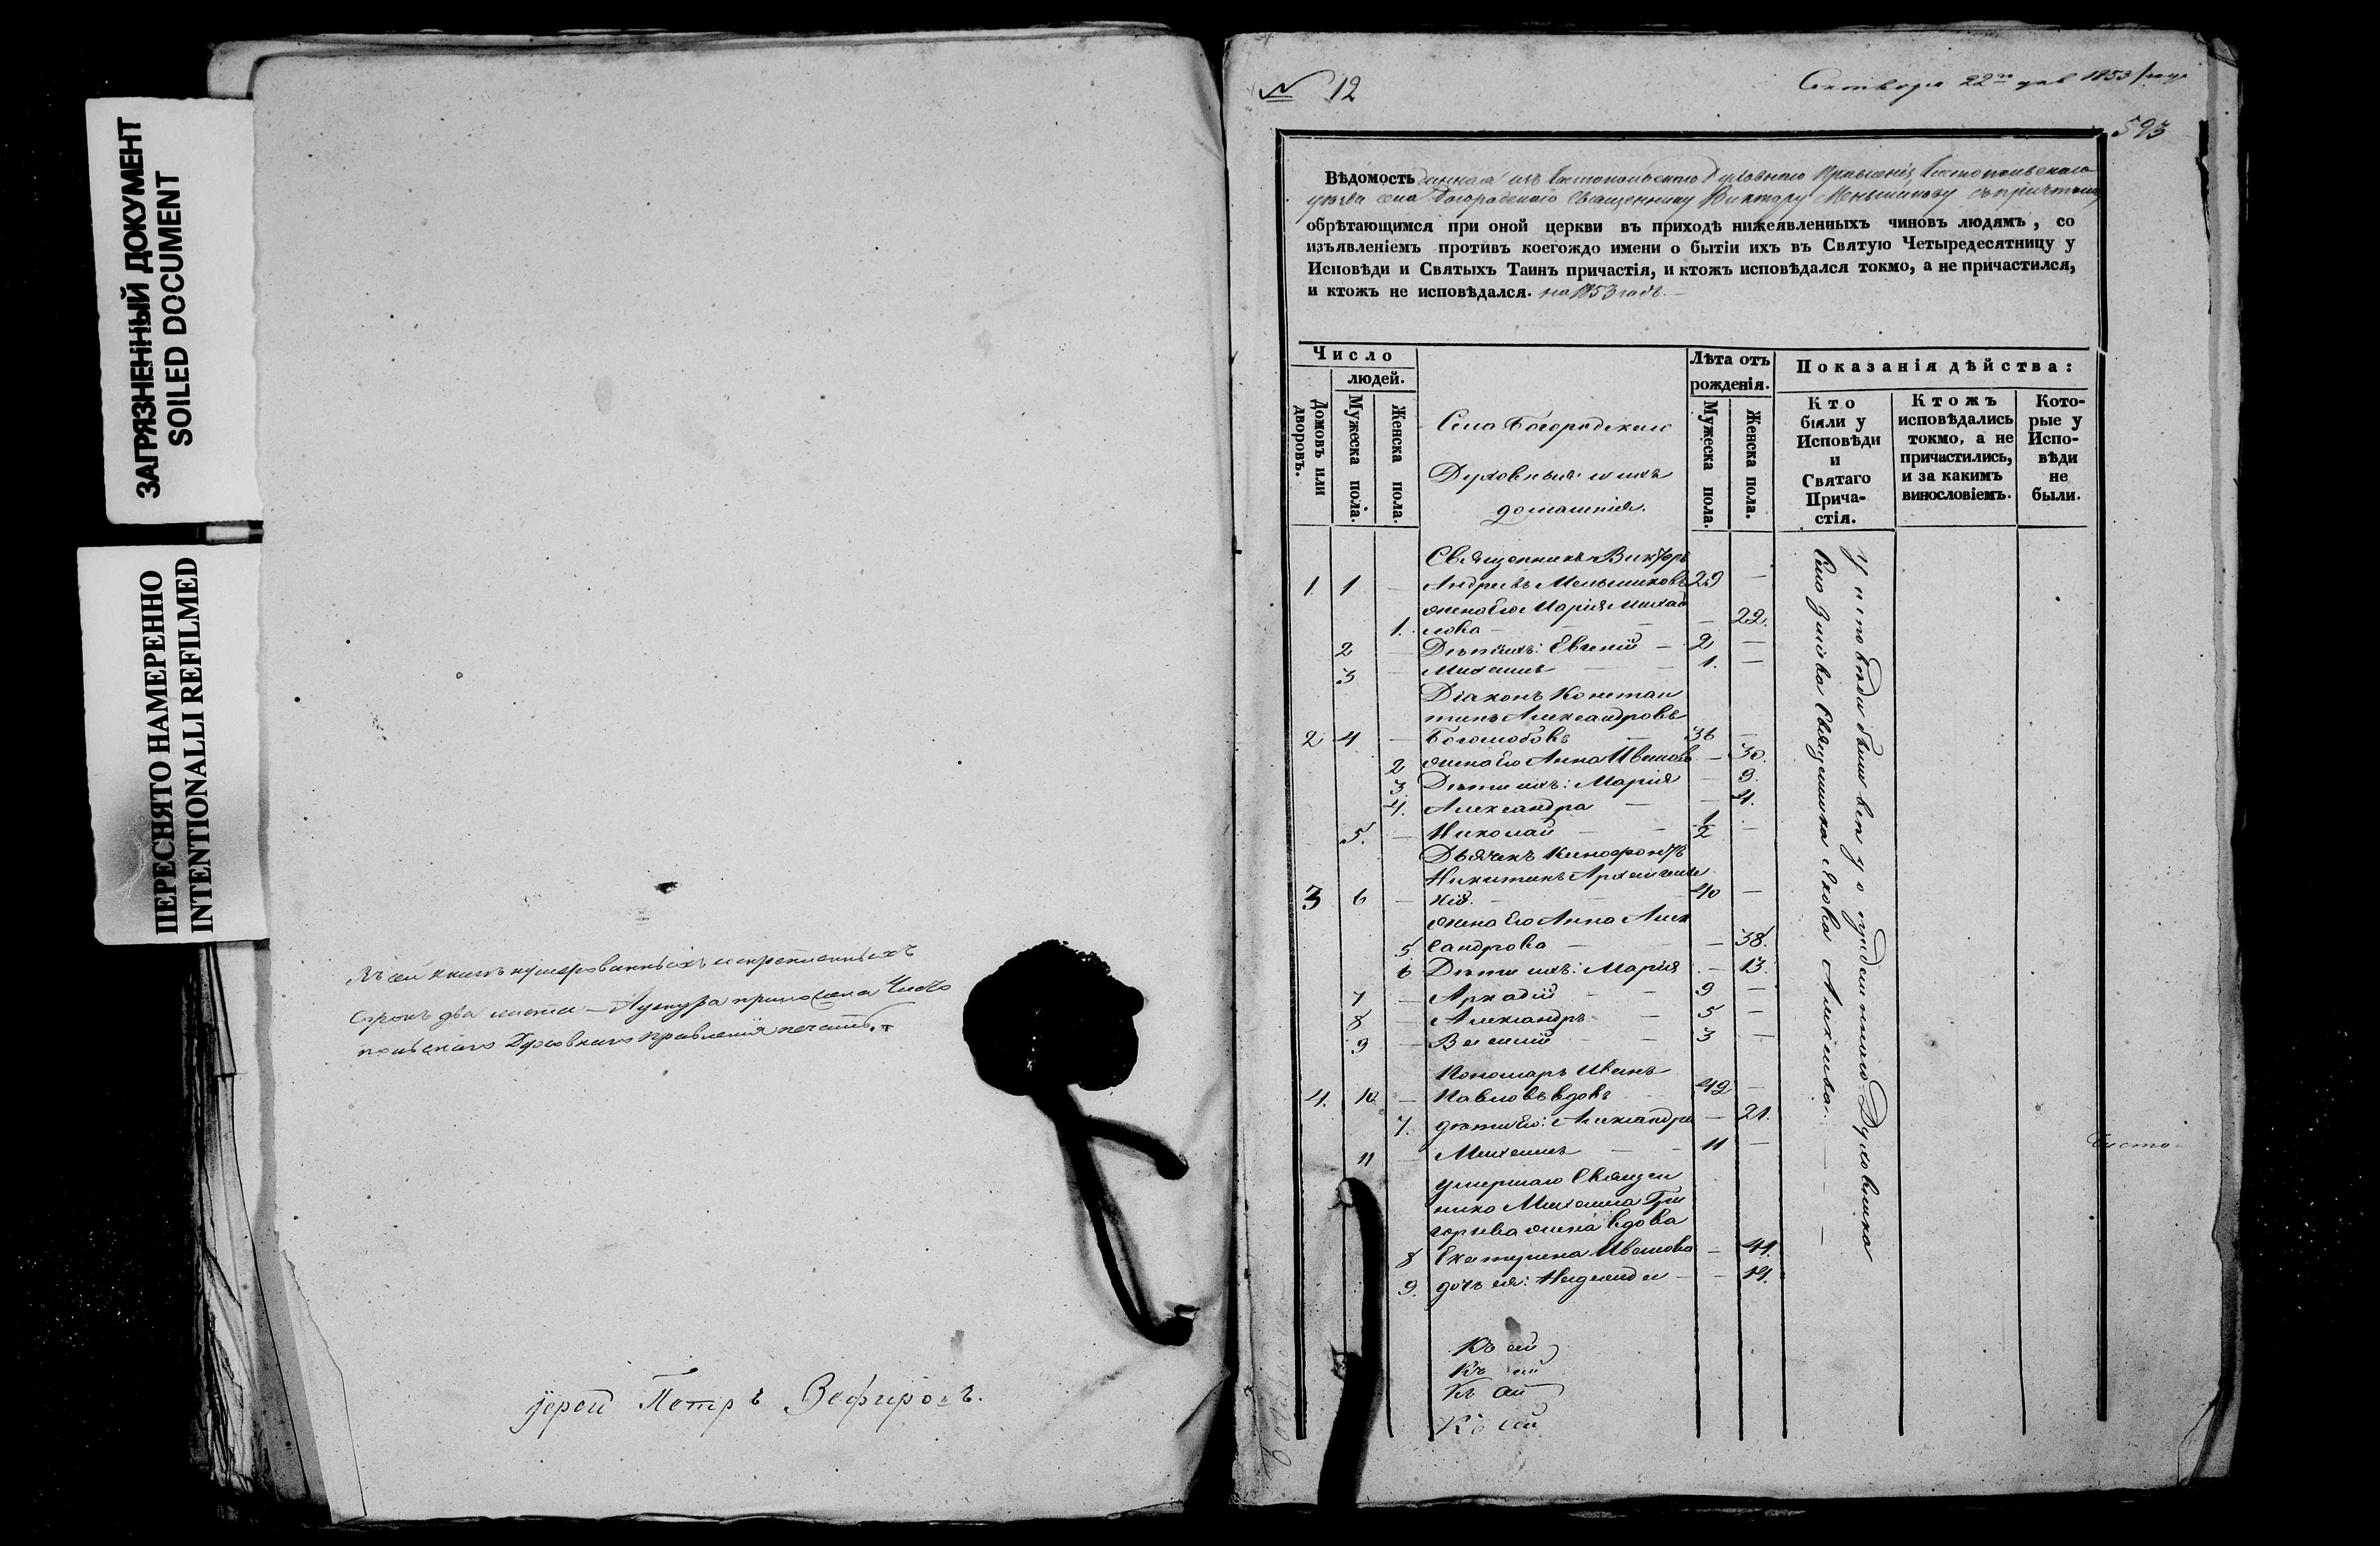 ЗАГРЯЗНЕННЫЙ ДОКУМЕНТ
SOILED DOCUMENT
ПЕРЕСНЯТО НАМЕРЕННО
INTENTIONALLI REFILMED
Въ сей книгѣ нумерованныхъ и скрепленныхъ
сорокъ два листа
Духовнаго Правленія печать.
Іерей Петръ Зефировъ.
№ 12
Октября 22го дня 1853 года
593
Вѣдомость данная изъ Чистопольскаго Духовнаго Правленія, Чистопольскаго
уѣзда села Богородскаго Священнику Виктору Меньшикову съ причтомъ
обрѣтающимся при оной церкви въ приходѣ нижеявленныхъ чиновъ людямъ, со
изъявленіемъ противъ коегождо имени о бытіи ихъ въ Святую Четыредесятницу у
Исповѣди и Святыхъ Таинъ причастія, и ктожъ исповѣдался токмо, а не причастился,
и ктожъ не исповѣдался. на 1853 годъ.
Число
людей.
Домовъ или дворовъ.
Мужеска пола.
Женска пола.
Села Богородскаго
Духовныя и ихъ
домашнія.
Лѣта отъ
рожденія.
Мужеска пола.
Женска пола.
Показанія дѣйства:
Кто
были у
Исповѣди
и
Святаго
Прича-
стія.
Ктожъ
исповѣдались
токмо, а не
причастились,
и за какимъ
винословіемъ.
Кото-
рые у
Испо-
вѣди
не
были.
Священникъ Викторъ
1. 1 — Андреевъ Меньшиковъ 29 —
жена Его Марія Михай
1. лова — — 22.
2 — Дѣти ихъ: Евгений — 2 —
3 — Михаилъ — 1. —
Діаконъ Констан
тинъ Александровъ
2 4 — Боголюбовъ — 36 —
2 жена Его Анна Иванова — 30.
3. Дѣти ихъ: Марія — 9.
4. Александра — — 4.
5. — Николай — 1/2 —
Дьячекъ Ксенофонтъ
Никитинъ Архангель
3 6 — скій. — 40 —
жена Его Анна Алек
5. сандрова — — 38.
6 Дѣти ихъ: Марія — 13.
7 — Аркадій — 9 —
8 — Александръ — 5 —
9 — Василий — 3 —
Пономарь Иванъ
4. 10 — Павловъ вдовъ 42 —
7. дѣти Его: Александра — 21.
11 — Михаилъ — 11 —
умершаго Священ
ника Михаила Гри
горьева жена вдова
8 Екатерина Иванова — 41.
9. дочь ея: Надежда — — 14.
У исповѣди были все у опредѣленнаго Духовника
Села Священника Якова Алексѣева.
Къ сей
Къ сей
Къ сей
Къ сей
Чисто-